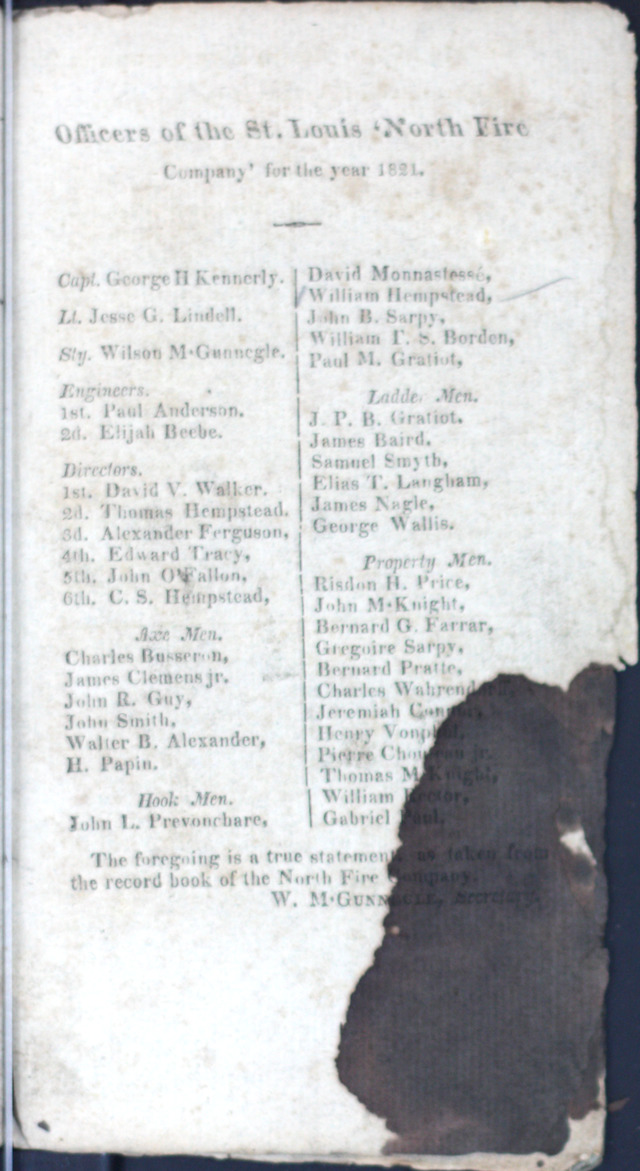 Officers of the St. Louis 'North Fire
Company' for the year 1821.
Capt. George H Kennerly.
Lt. Jesse G. Lindell.
Sty. Wilson M'Gunnegle.
Engineers.
1st. Paul Anderson.
2d. Elijah Beebe.
Directors.
1st. David V. Walker.
2d. Thomas Hempstead.
3d. Alexander Ferguson,
4th. Edward Tracy,
5th. John O'Fallon,
6th. C. S. Hempstead,
Axe Men.
Charles Busseron,
James Clemens jr.
John R. Guy,
John Smith,
Walter B. Alexander,
H. Papin.
Hook Men.
John L. Prevonchare,
David Monnastessé,
William Hempstead,
John B. Sarpy,
William T. S. Borden,
Paul M. Gratiot,
Ladder Men.
J. P. B. Gratiot.
James Baird.
Samuel Smyth,
Elias T. Langham,
James Nagle,
George Wallis.
Property Men.
Risdon H. Price,
John M'Knight,
Bernard G. Farrar,
Gregoire Sarpy,
Bernard Pratte,
Charles Wahrendorff,
Jeremiah Connor,
Henry Vonphul,
Pierre Chouteau jr.
Thomas M'Knight,
William Rector,
Gabriel Paul.
The foregoing is a true statement, as taken from
the record book of the North Fire Company.
W. M'GUNNEGLE, Secretary.